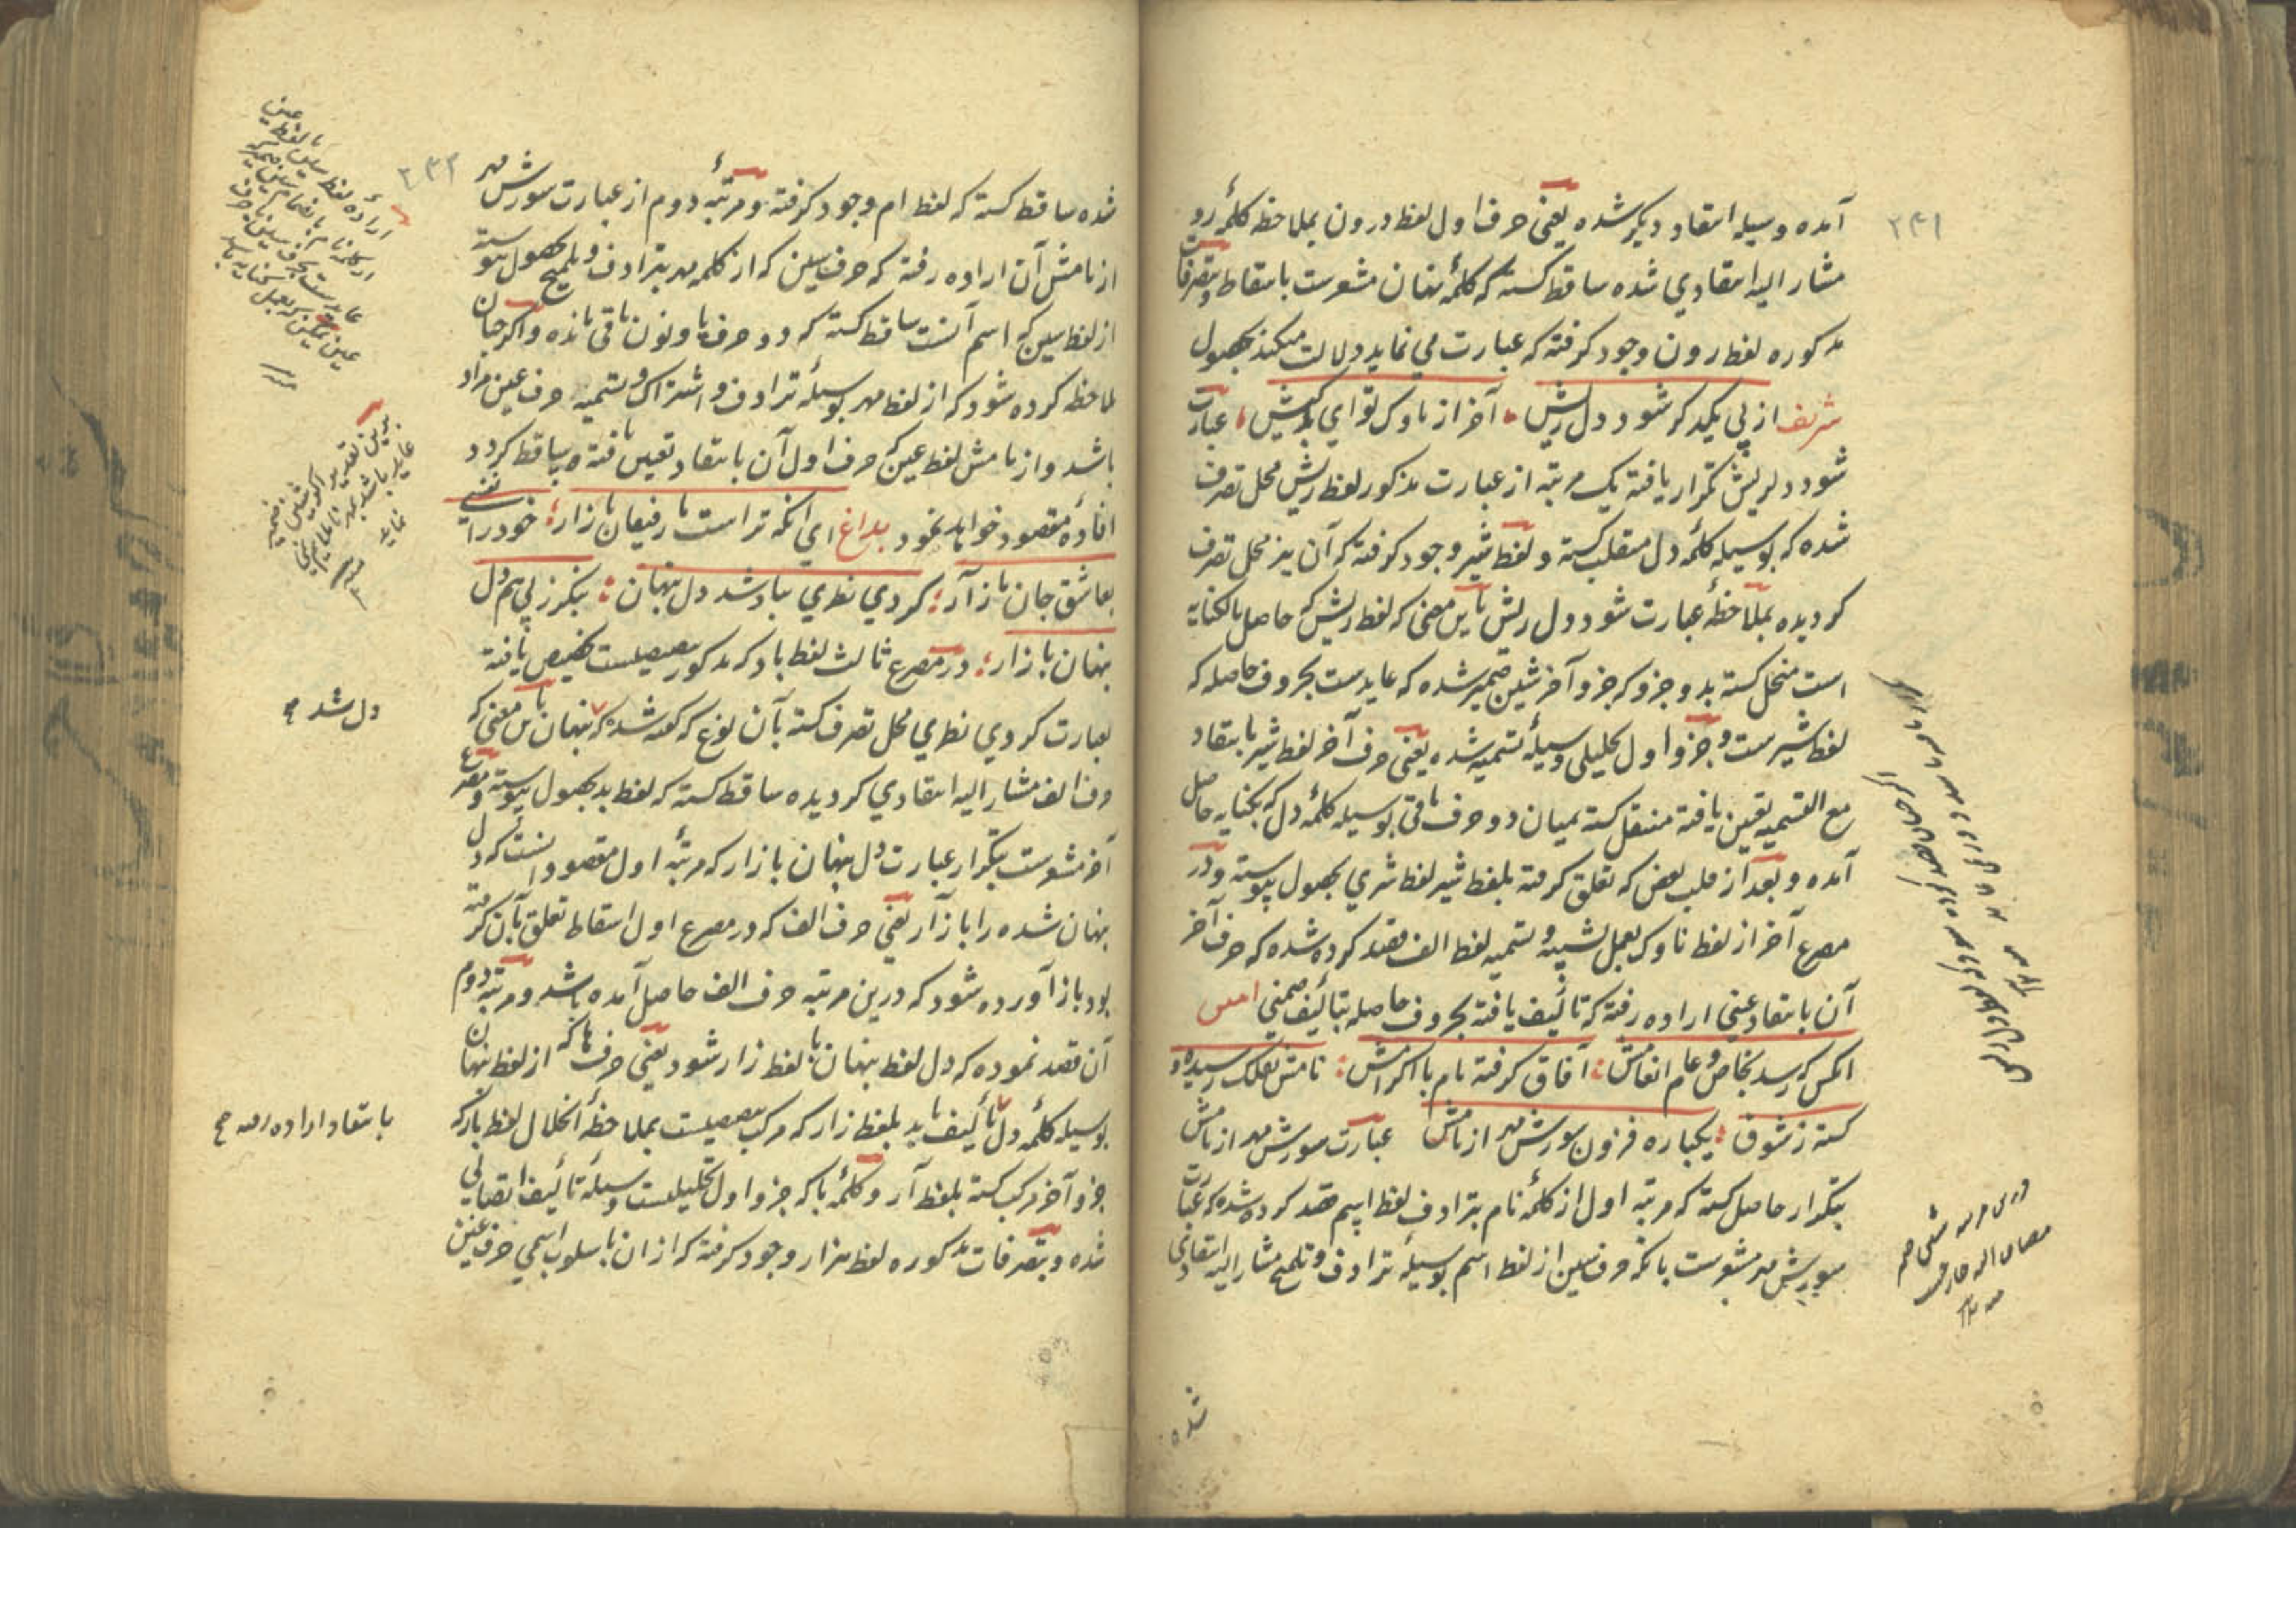 ۲۴۱
آمده وسیله انتقاد دیگر شده یعنی حرف اول لفظ درون بملاحظه کلمهٔ رو
مشار الیه انتقادی شده ساقط کشته که کلمهٔ نهان مشعرست باسقاط و بتصرفات
مذکوره لفظ رون وجود گرفته که عبارت می نماید دلالت میکند بحصول
شریف از پی یکدگر شود دل ریش آخر از ناوک تو ای بدکیش عبارت
شود دلریش تکرار یافته یک مرتبه از عبارت مذکور لفظ ریش محل تصرف
شده که بوسیله کلمهٔ دل منقلب کشته و لفظ شیر وجود گرفته که آن نیز محل تصرف
کردیده بملاحظهٔ عبارت شود دل ریش باین معنی که لفظ ریش که حاصل بالکنایه
است منحل کشته بدو جزو که جزو آخر شین ضمیر شده که عایدست بحروف حاصله که
لفظ شیرست و جزو اول تحلیلی وسیلهٔ تسمیه شده یعنی حرف آخر لفظ شیر بانتقاد
مع التسمیه تعین یافته منتقل کشته بمیان دو حرف باقی بوسیله کلمهٔ دل که بکنایه حاصل
آمده و بعد از قلب بعض که تعلق گرفته بلفظ شیر لفظ شری بحصول پیوسته و در
مصرع آخر از لفظ ناوک بعمل تشبیه و تسمیه لفظ الف قصد کرده شده که حرف آخر
آن بانتقاد عینی اراده رفته که تألیف یافته بحروف حاصله بتألیف ضمنی
انکس که رسد بخاص و عام انعامش آفاق گرفته نام با اکرامش نامش بفلک رسیده و
کشته ز شوق یکباره فزون سورش مهر از نامش عبارت سورش مهر از نامش
بتکرار حاصل کشته که مرتبه اول از کلمهٔ نام بترادف لفظ اسم قصد کرده شده که عبارت
سورش مهر مشعرست بانکه حرف سین از لفظ اسم بوسیلهٔ ترادف و تلمیح مشار الیه انتقادی
شده
۲۴۲
شده ساقط کشته که لفظ ام وجود گرفته و مرتبهٔ دوم از عبارت سورش مهر
از نامش آن اراده رفته که حرف سین که از کلمه مهر بترادف و تلمیح بحصول پیوسته
از لفظ سین که اسم آنست ساقط کشته که دو حرف یا و نون باقی مانده و اگر چنان
ملاحظه کرده شود که از لفظ مهر بوسیلهٔ ترادف و اشتراک و تسمیه حرف عین مراد
باشد و از نامش لفظ عین که حرف اول آن بانتقاد تعین یافته ساقط کردد
افادهٔ مقصود خواهد نمود بداغ ای آنکه تراست با رفیقان بازار خود را نفسی
بعاشق جان باز آر کردی نظری بباد شد دل پنهان بنگر ز پی هم دل
پنهان بازار در مصرع ثالث لفظ باد که مذکور تخصیص یافته
بعبارت کردی نظری محل تصرف کشته بآن نوع که شد که پنهان باین معنی که
حرف الف مشار الیه انتقادی کردیده ساقط کشته که لفظ بد بحصول پیوسته و مصرع
آخر مشعرست بتکرار عبارت دل پنهان بازار که مرتبهٔ اول مقصود آنست که دل
پنهان شده را باز آر یعنی حرف الف که در مصرع اول اسقاط تعلق بآن گرفته
بود باز آورده شود که درین مرتبه حرف الف حاصل آمده باشد و مرتبهٔ دوم
آن قصد نموده که دل لفظ پنهان با لفظ زار شود یعنی حرف ها که از لفظ پنهان
بوسیله کلمهٔ دل تألیف یابد بلفظ زار که مرکب بملاحظهٔ انحلال لفظ بازار که
جزو آخر مرکب کشته بلفظ آر و کلمهٔ با که جزو اول تحلیلیست وسیلهٔ تألیف اتصالی
شده و بتصرفات مذکوره لفظ هزار وجود گرفته که از ان باسلوب اسمی حرف غین
دل شد
بانتقاد اراده رفته صح